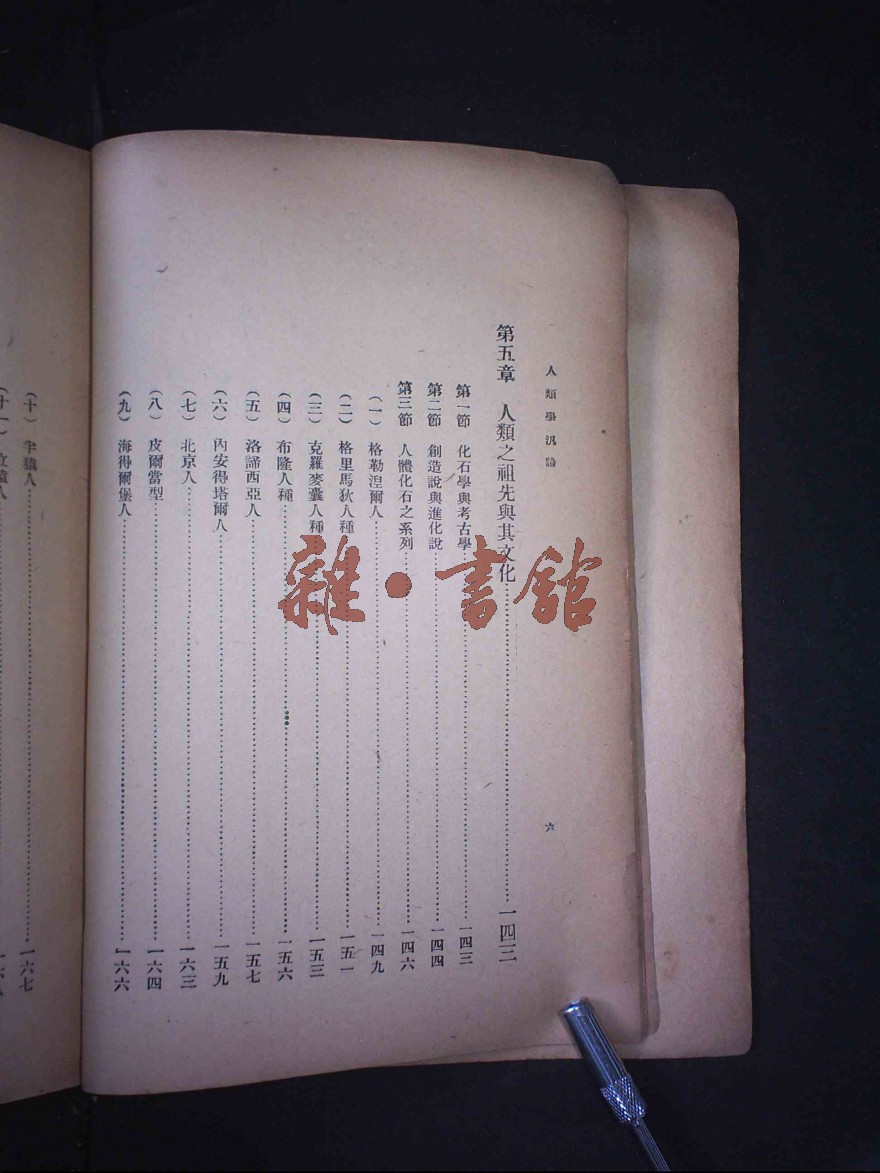 人類學汎論
六
第五章 人類之祖先與其文化……一四三
第一節 化石學與考古學……一四三
第二節 創造說與進化說……一四四
第三節 人體化石之系列……一四六
(一) 格勒涅爾人……一四九
(二) 格里馬狄人種……一五一
(三) 克羅麥囊人種……一五三
(四) 布隆人種……一五六
(五) 洛諦西亞人……一五七
(六) 內安得塔爾人……一五九
(七) 北京人……一六三
(八) 皮爾當型……一六四
(九) 海得爾堡人……一六六
(十) 半猿人……一六七
(十一)
雜·書館